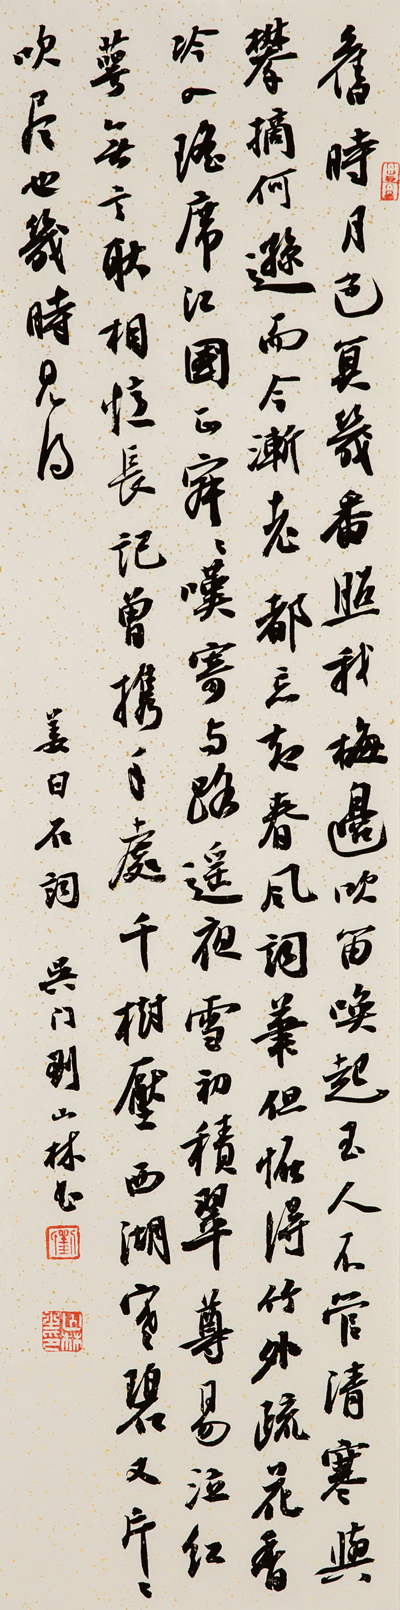 舊時月色算幾番照我梅邊吹笛喚起玉人不管清寒與
攀摘何遜而今漸老都忘却春風詞筆但怪得竹外疏花香
冷入瑤席江國正寂寂嘆寄与路遥夜雪初積翠尊易泣紅
萼無言耿相憶長記曾携手處千樹壓西湖寒碧又片片
吹尽也幾時見得
姜白石詞 吳門劉山林書